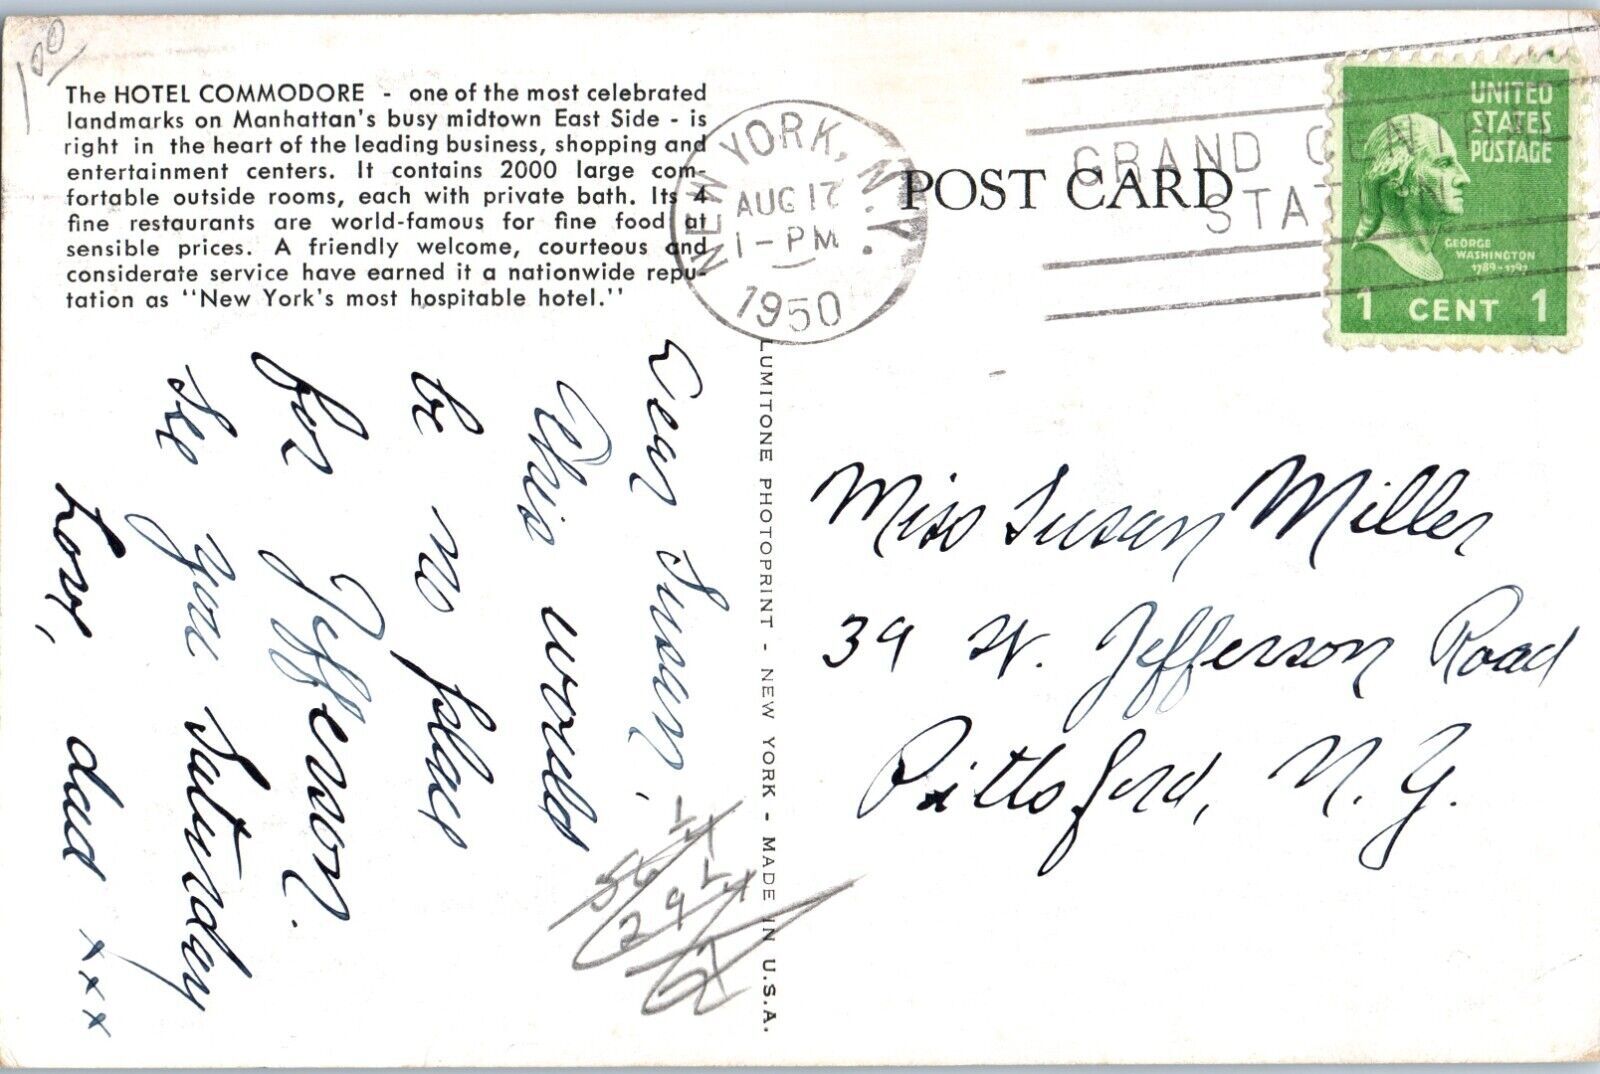 1.00
The HOTEL COMMODORE - one of the most celebrated
landmarks on Manhattan's busy midtown East Side - is
right in the heart of the leading business, shopping and
entertainment centers. It contains 2000 large com-
fortable outside rooms, each with private bath. Its 4
fine restaurants are world-famous for fine food at
sensible prices. A friendly welcome, courteous and
considerate service have earned it a nationwide repu-
tation as "New York's most hospitable hotel."
NEW YORK, N.Y.
AUG 17
1-PM
1950
POST CARD
GRAND CENTRAL
STATION
UNITED
STATES
POSTAGE
GEORGE
WASHINGTON
1789-1797
1 CENT 1
Dear Susan,
This would
be no place
for Jefferson.
See you Saturday
Love, dad xxx
LUMITONE PHOTOPRINT - NEW YORK - MADE IN U.S.A.
Miss Susan Miller
39 W. Jefferson Road
Pittsford, N. Y.